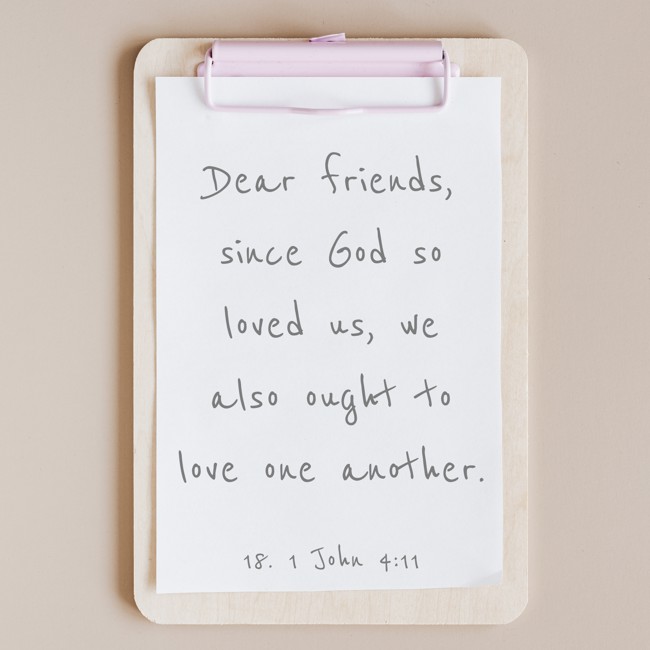 Dear friends,
since God so
loved us, we
also ought to
love one another.
18. 1 John 4:11